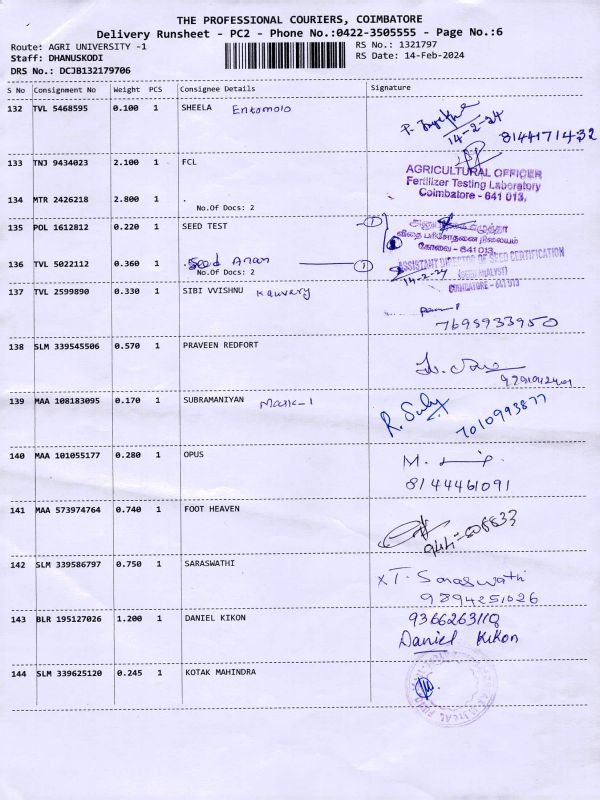 THE PROFESSIONAL COURIERS, COIMBATORE
Delivery Runsheet - PC2 - Phone No.:0422-3505555 - Page No.:6
Route: AGRI UNIVERSITY -1
Staff: DHANUSKODI
DRS No.: DCJB132179706
RS No.: 1321797
RS Date: 14-Feb-2024
S No Consignment No Weight PCS Consignee Details Signature
132 TVL 5468595 0.100 1 SHEELA Entomolo
14-2-24
8144171432
133 TNJ 9434023 2.100 1 FCL
AGRICULTURAL OFFICER
Fertilizer Testing Laboratory
Coimbatore - 641 013.
134 MTR 2426218 2.800 1 .
No.Of Docs: 2
135 POL 1612812 0.220 1 SEED TEST 1
விதை பரிசோதனை நிலையம்
கோவை - 641 013.
136 TVL 5022112 0.360 1 . Seed Anan 1
No.Of Docs: 2
ASSISTANT DIRECTOR OF SEED CERTIFICATION
14-2-24 (SEED ANALYST)
COIMBATORE - 641 013
137 TVL 2599890 0.330 1 SIBI VVISHNU Kauvery
7695933950
138 SLM 339545506 0.570 1 PRAVEEN REDFORT
139 MAA 108183095 0.170 1 SUBRAMANIYAN
R. Suby
7010993877
140 MAA 101055177 0.280 1 OPUS
M.
8144461091
141 MAA 573974764 0.740 1 FOOT HEAVEN
142 SLM 339586797 0.750 1 SARASWATHI
x T. Saraswathi
9894251026
143 BLR 195127026 1.200 1 DANIEL KIKON
9366263118
Daniel Kikon
144 SLM 339625120 0.245 1 KOTAK MAHINDRA